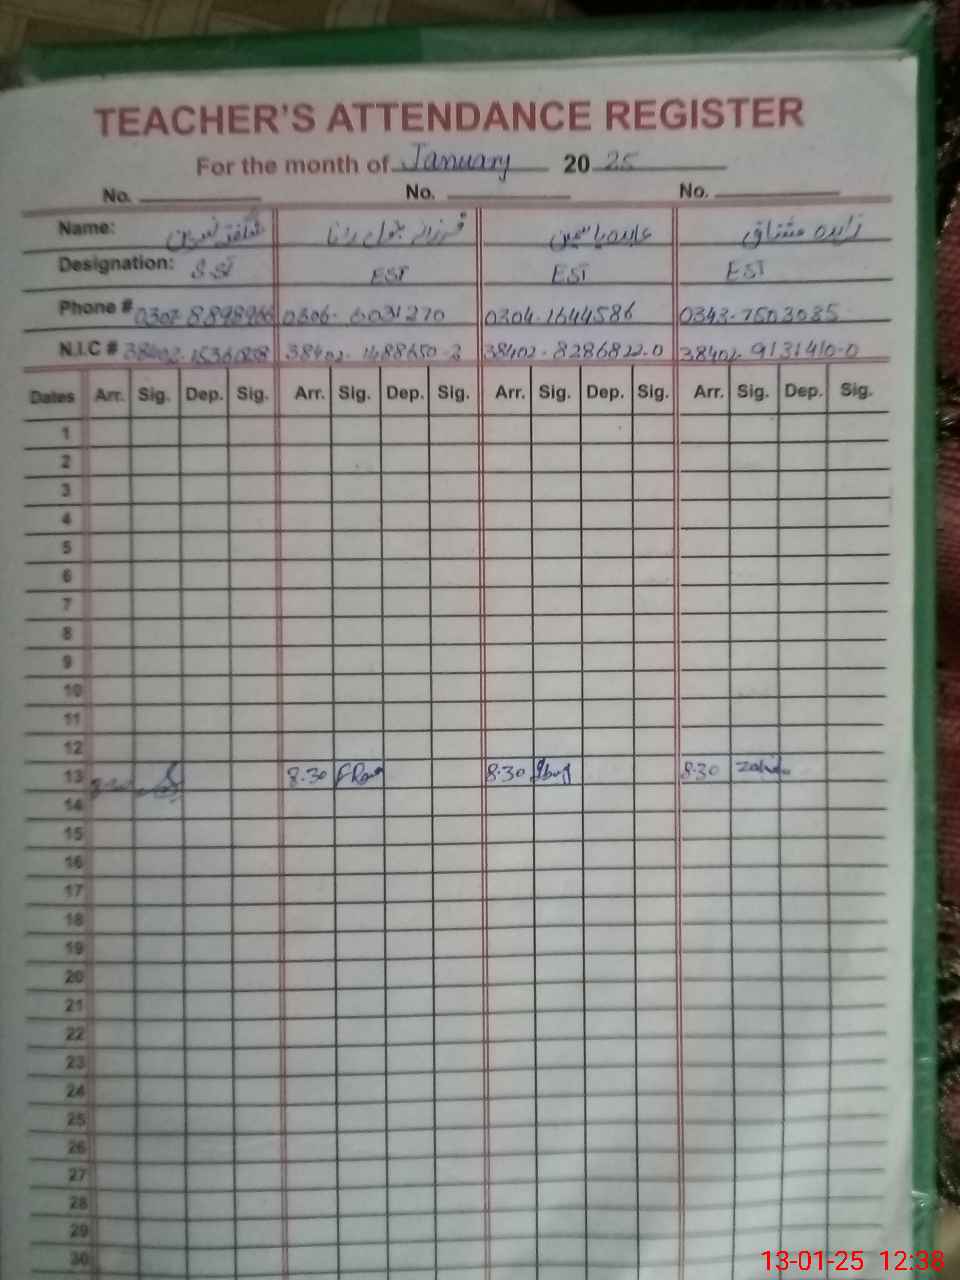 TEACHER'S ATTENDANCE REGISTER
For the month of January 2025
No. No. No.
Name: شگفتہ نسرین فرزانہ بتول رانا عابدہ یاسمین زاہدہ مشتاق
Designation: S.ST EST EST EST
Phone # 0306-6031270 0304-1644586 0343-7503035
N.I.C # 38402-1488650-2 38402-8286822-0 38402-9131410-0
Dates Arr. Sig. Dep. Sig. Arr. Sig. Dep. Sig. Arr. Sig. Dep. Sig. Arr. Sig. Dep. Sig.
1
2
3
4
5
6
7
8
9
10
11
12
13 8:30 8:30 8:30
14
15
16
17
18
19
20
21
22
23
24
25
26
27
28
29
30
13-01-25 12:38